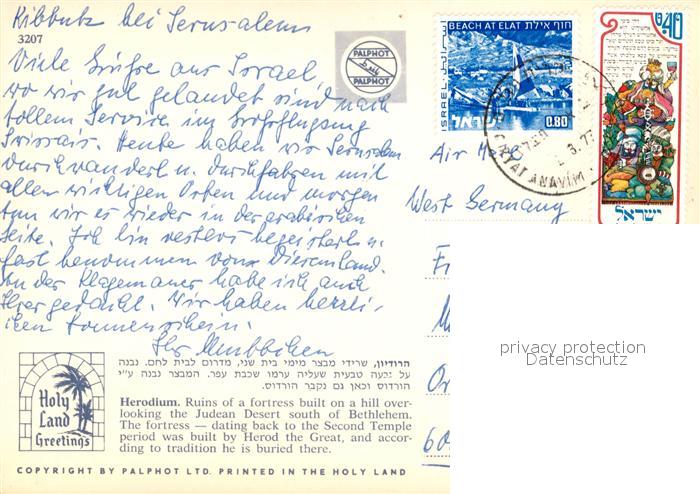 Kibbutz bei Jerusalem
3207
PALPHOT
Viele Grüße aus Israel,
wo wir gut gelandet sind nach
tollem Service im Großflugzeug
Swissair. Heute haben wir Jerusalem
durchwandert u. durchfahren mit
allen wichtigen Orten und morgen
tun wir es wieder in der arabischen
Seite. Ich bin restlos begeistert u.
fast benommen von diesem Land.
An der Klagemauer habe ich auch
Ihrer gedacht. Wir haben herrli-
chen Sonnenschein.
Ihr
BEACH AT ELAT חוף אילת
ISRAEL
ישראל 0.80
0.40
ישראל
QIRYAT ANAVIM
Air Mail
West Germany
privacy protection
Datenschutz
Holy
Land
Greetings
הרודיון, שרידי מבצר מימי בית שני, מדרום לבית לחם. נבנה
על גבעה טבעית שעליה ערמו שכבת עפר. המבצר נבנה ע״י
הורדוס וכאן גם נקבר הורדוס.
Herodium. Ruins of a fortress built on a hill over-
looking the Judean Desert south of Bethlehem.
The fortress — dating back to the Second Temple
period was built by Herod the Great, and accor-
ding to tradition he is buried there.
COPYRIGHT BY PALPHOT LTD. PRINTED IN THE HOLY LAND